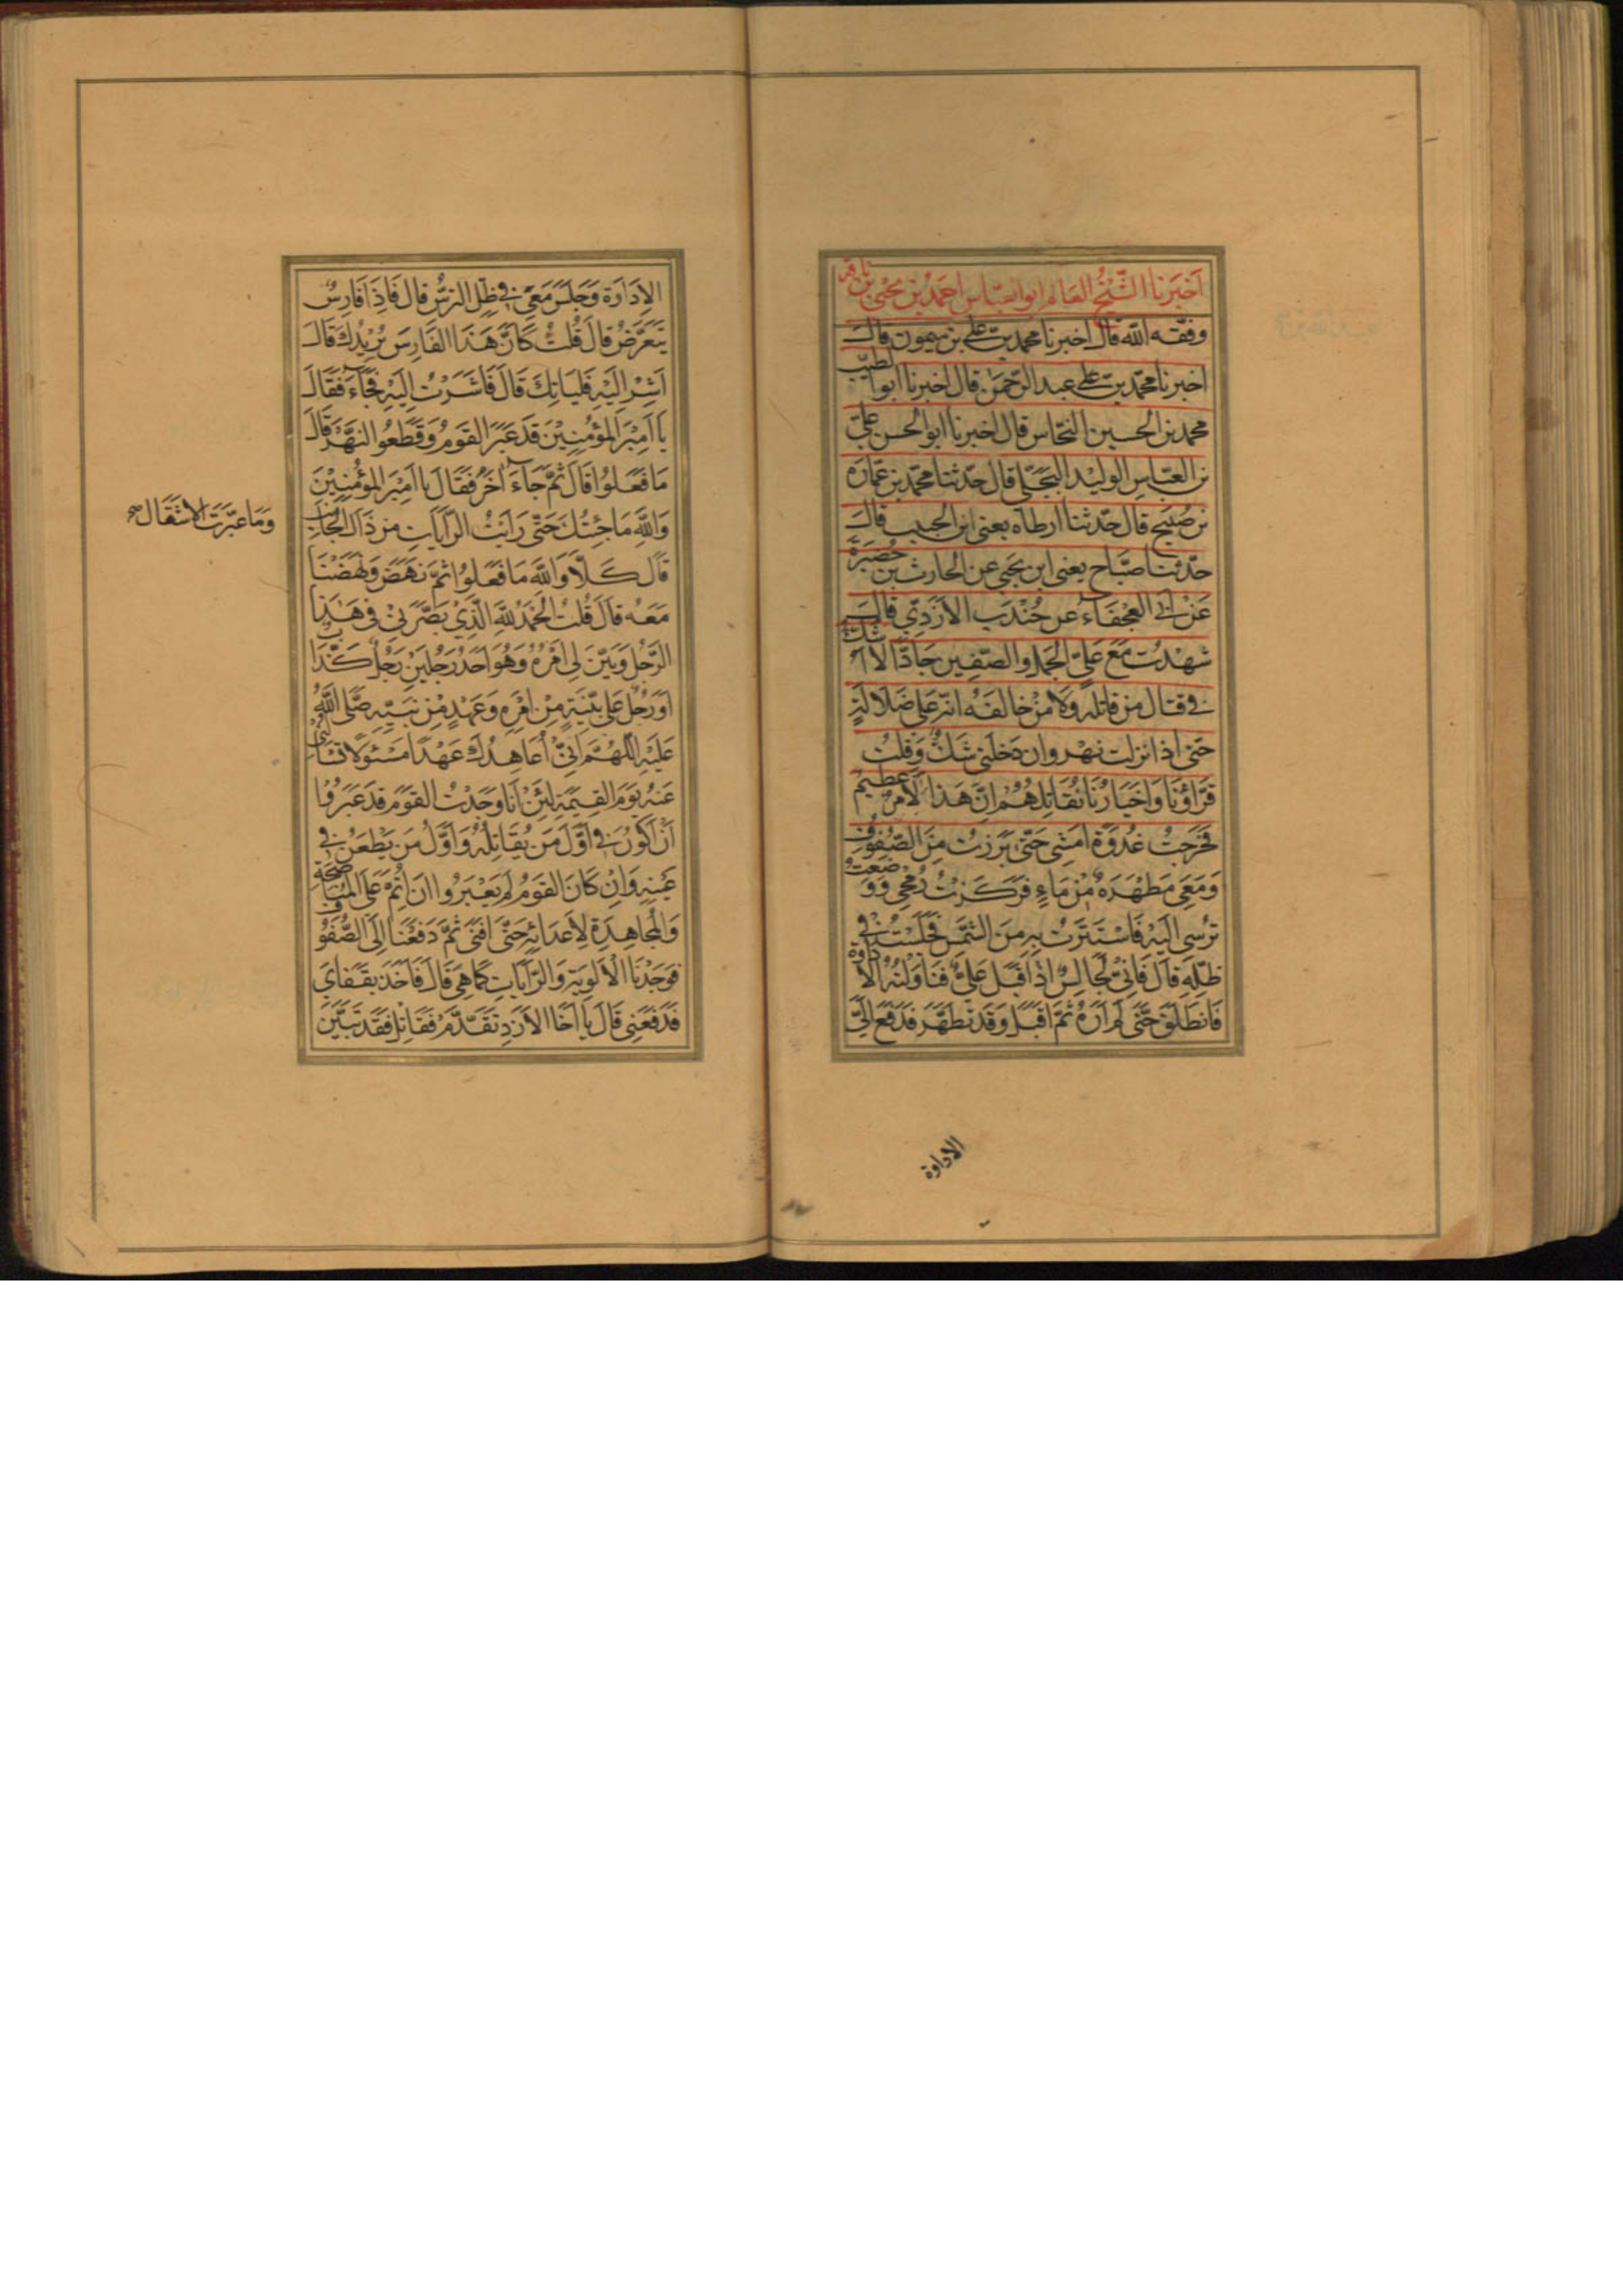 اخبرنا الشيخ العالم ابو العباس احمد بن يحيى بن ناقد
وفقه الله قال اخبرنا محمد بن علي بن ميمون قال
اخبرنا محمد بن علي عبد الرحمن قال اخبرنا ابوا لطيب
محمد بن الحسين النخاس قال اخبرنا ابو الحسن علي
بن العباس الوليد البجلي قال حدثنا محمد بن عمارة
بن صبيح قال حدثنا ارطاه يعني ابن الحبيب قال
حدثنا صباح يعني ابن يحيى عن الحارث بن حضيرة
عن ابي العجفاء عن جندب الازدي قال
شهدت مع علي الجمل والصفين جادا لا اشك
في قتال من قاتله ولا من خالفه انه على ضلالة
حتى اذا نزلت نهروان دخلني شك وقلت
قراؤنا واخيارنا نقاتلهم ان هذا لامر عظيم
فخرجت غدوة امشي حتى برزت من الصفوف
ومعي مطهرة من ماء فركزت رمحي ووضعت
ترسي اليه فاستترت به من الشمس فجلست في
ظله قال فاني لجالس اذ اقبل علي فناولته الاداوة
فانطلق حتى لم اره ثم اقبل وقد تطهر فدفع الي
الاداوة
الاداوة وجلس معي في ظل الترس قال فاذا فارس
يتعرض قال قلت كان هذا الفارس يريدك قال
اشر اليه فليأتك قال فاشرت اليه فجاء فقال
يا امير المؤمنين قد عبر القوم وقطعوا النهر قال
ما فعلوا قال ثم جاء آخر فقال يا امير المؤمنين
والله ما جئتك حتى رايت الرايات من ذاك الجانب
وما عبرت الاثقال صح
قال كلا والله ما فعلوا ثم نهض ونهضنا
معه قال قلت الحمد لله الذي بصرني في هذا
الرجل وبين لي امره وهو احد رجلين رجل كذاب
او رجل على بينة من امره وعهد من نبيه صلى الله
عليه اللهم اني اعاهدك عهدا مسئولا تسئلني
عنه يوم القيمة لئن انا وجدت القوم قد عبروا
ان اكون في اول من يقاتله واول من يطعن في
عينه وان كان القوم لم يعبروا ان اتم على المناصحة
والمجاهدة لاعدائه حتى افنى ثم دفعنا الى الصفوف
فوجدنا الالوية والرايات كما هي قال فاخذ بقفاي
فدفعني قال يا اخا الازد تقدم فقاتل فقد تبين